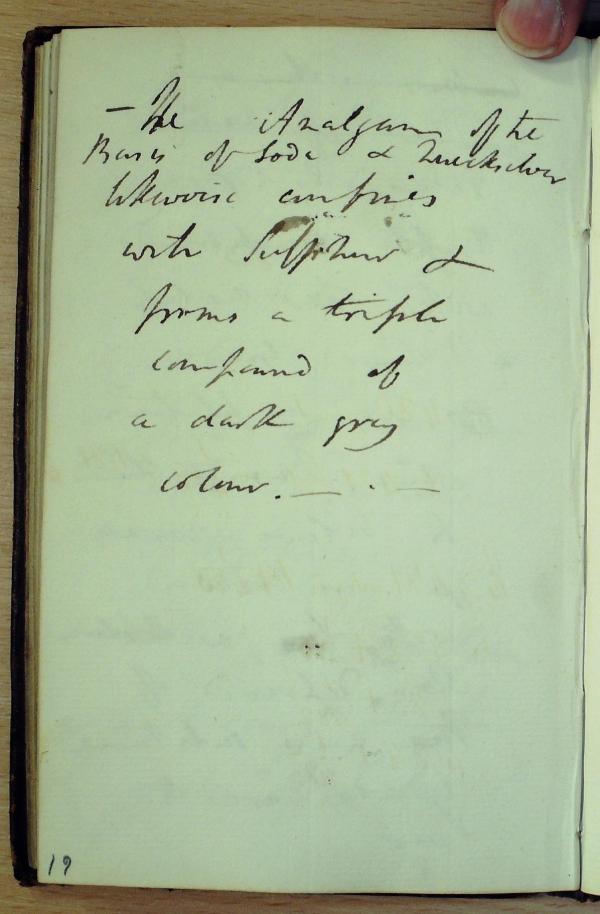 — The Amalgam of the
Basis of Soda & Quicksilver
likewise combines
with Sulphur &
forms a triple
compound of
a dark gray
colour. — . —
19